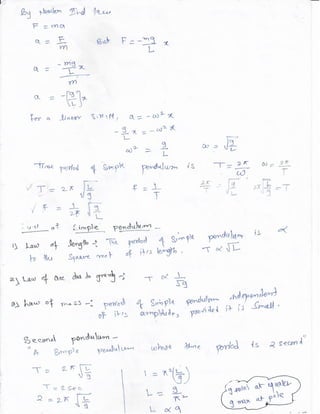 By Newton IInd law
F = ma
a = F/m but F = -mg/L x
a = -mg/L x / m
a = -[g/L]x
For a linear S.H.M, a = -ω² x
-g/L x = -ω² x
ω² = g/L ω = √g/L
Time period of Simple pendulum is T = 2π/ω ω = 2π/T
T = 2π √L/g f = 1/T 2π/T = √g/L
f = 1/2π √g/L
of Simple pendulum —
1) Law of length :- The period of Simple pendulum is ∝
to the square root of its length. T ∝ √L
2) Law of acc due to gravity -: T ∝ 1/√g
3) Law of mass -: period of Simple pendulum independent
of its amplitude, provided it is small.
Second pendulum —
"A Simple pendulum whose time period is 2 second"
T = 2π √L/g 1 = π √(L/g)
T = 2 sec L = g/π²
2 = 2π √L/g L ∝ g
g min at equator
g max at pole